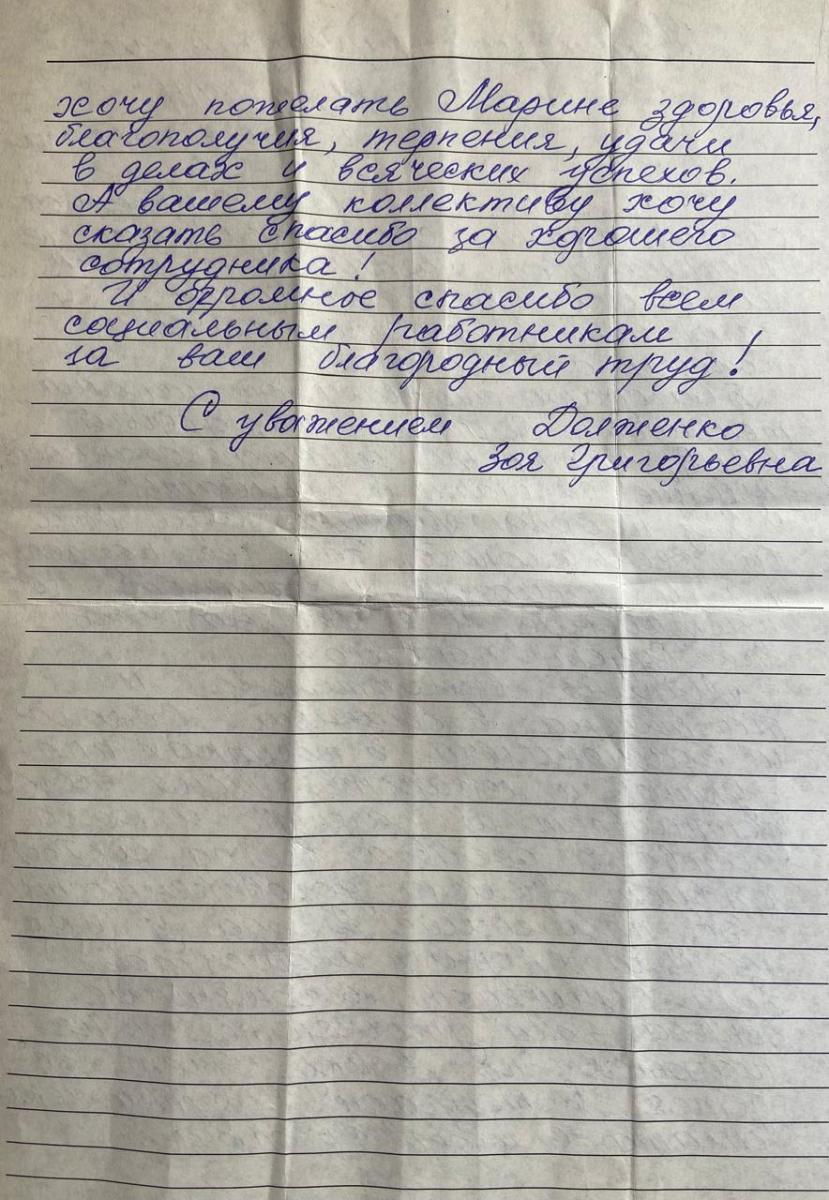 хочу пожелать Марине здоровья,
благополучия, терпения, удачи
в делах и всяческих успехов.
А вашему коллективу хочу
сказать спасибо за хорошего
сотрудника!
И огромное спасибо всем
социальным работникам
за ваш благородный труд!
С уважением Долженко
Зоя Григорьевна